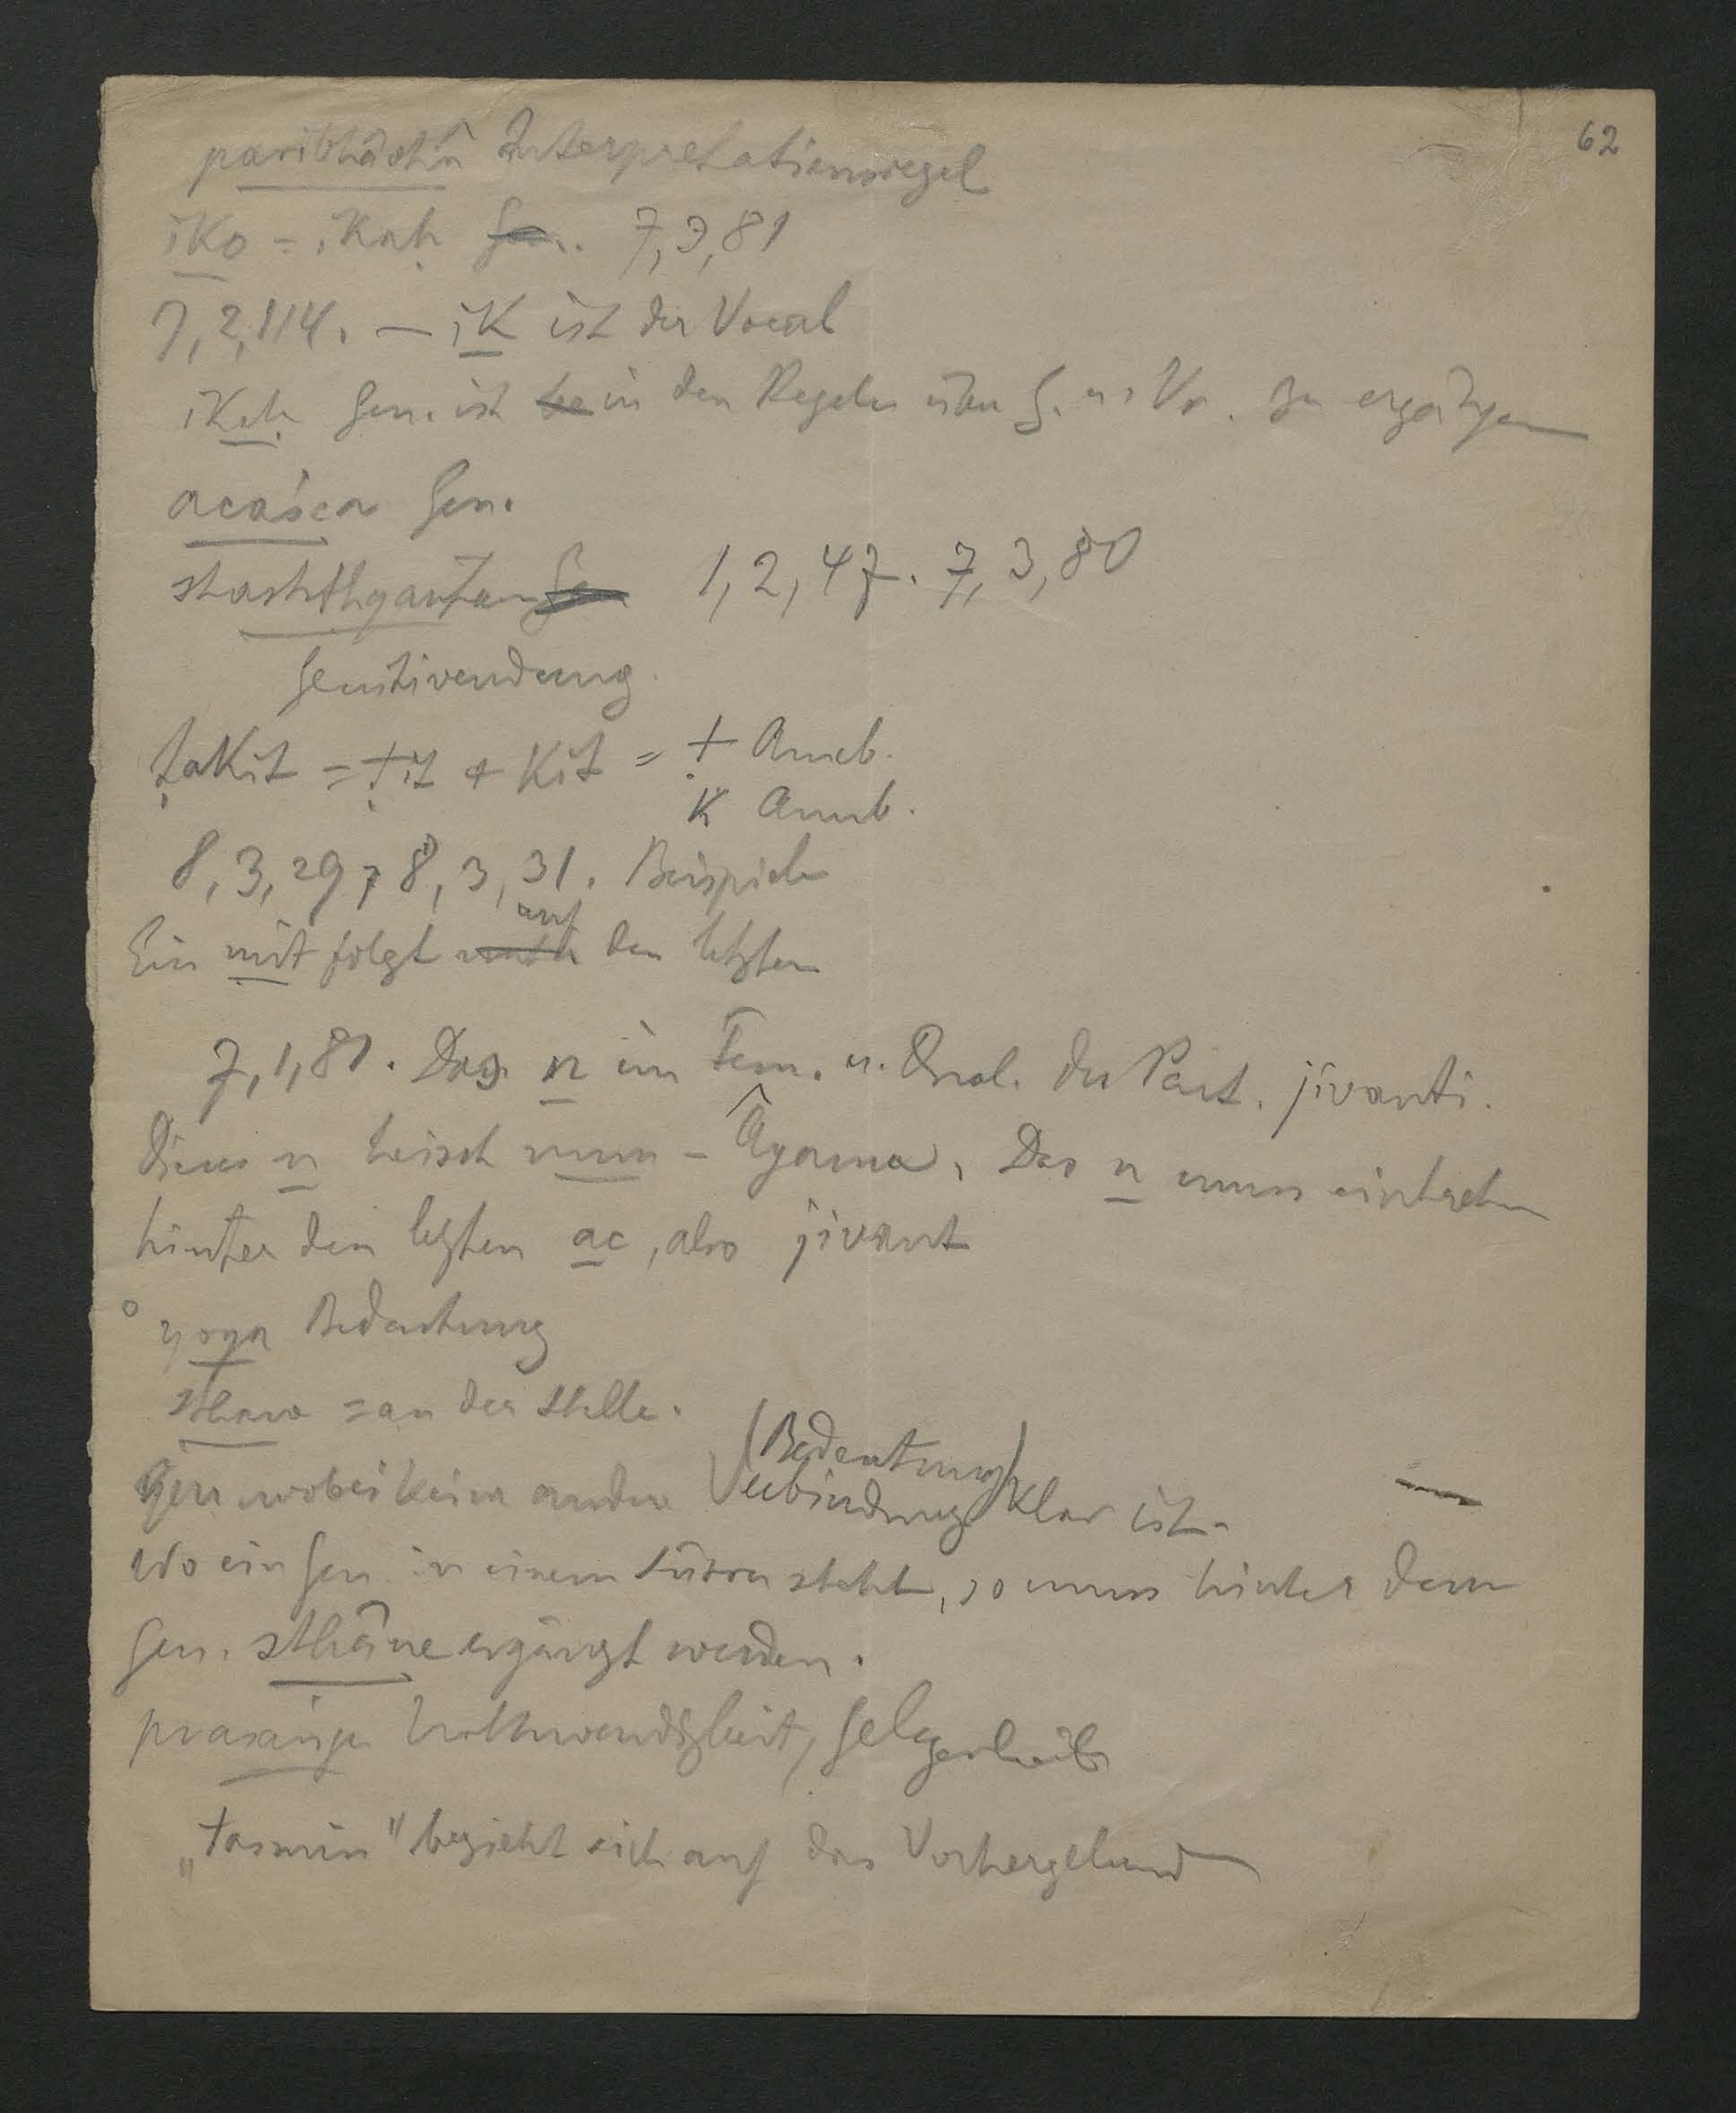 62
paribhâshâ Interpretationsregel
iko = ikaḥ Gen. 7,3,81
7,2,114. — ik ist der Vocal
ikaḥ Gen. ist in den Regeln über G. u. Vṛ. zu ergänzen
acaśca Gen.
shashṭhyantam 1,2,47. 7,3,80
Genitivendung
ṭakit = ṭit + kit = ṭ Anub.
k Anub.
8,3,29, 8,3,31. Beispiele
auf
Ein mit folgt den letzten
7,1,81. Das n im Fem. u. Dual. des Part. jivanti.
Dieses n heisst num - Âgama. Das n muss eintreten
hinter den letzten ac, also jivant
° yoga Bedeutung
sthane = an der Stelle.
(Bedeutung)
Gen wobei keine andere Verbindung klar ist.
Wo ein Gen. in einem Sûtra steht, so muss hinter dem
Gen. sthâne ergänzt werden.
prasaṅga Nothwendigkeit, Gelegenheit
„tasmin" bezieht sich auf das Vorhergehende